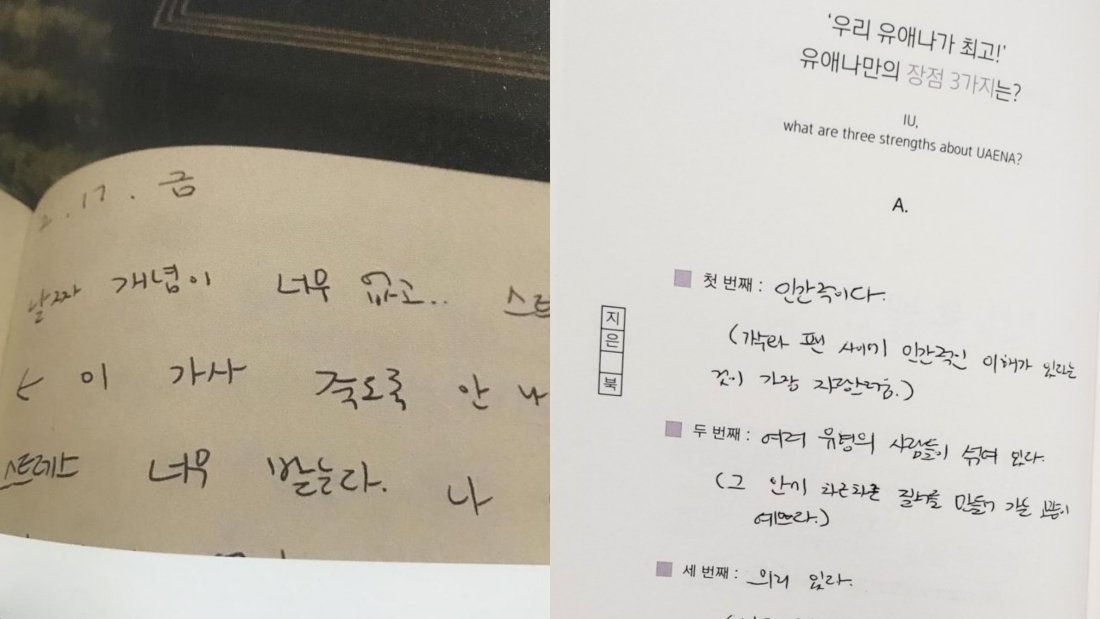 2.17. 금
날짜 개념이 너무 없고.. 스트
이 가사 죽도록 안 나
스트레스 너무 받는다. 나
'우리 유애나가 최고!'
유애나만의 장점 3가지는?
IU,
what are three strengths about UAENA?
A.
지은 북
첫 번째 : 인간적이다.
(가수와 팬 사이에 인간적인 이해가 있다는
것이 가장 자랑스러움.)
두 번째 : 여러 유형의 사람들이 섞여 있다.
(그 안에 차근차근 질서를 만들어 가는 모습이
예쁘다.)
세 번째 : 의리 있다.